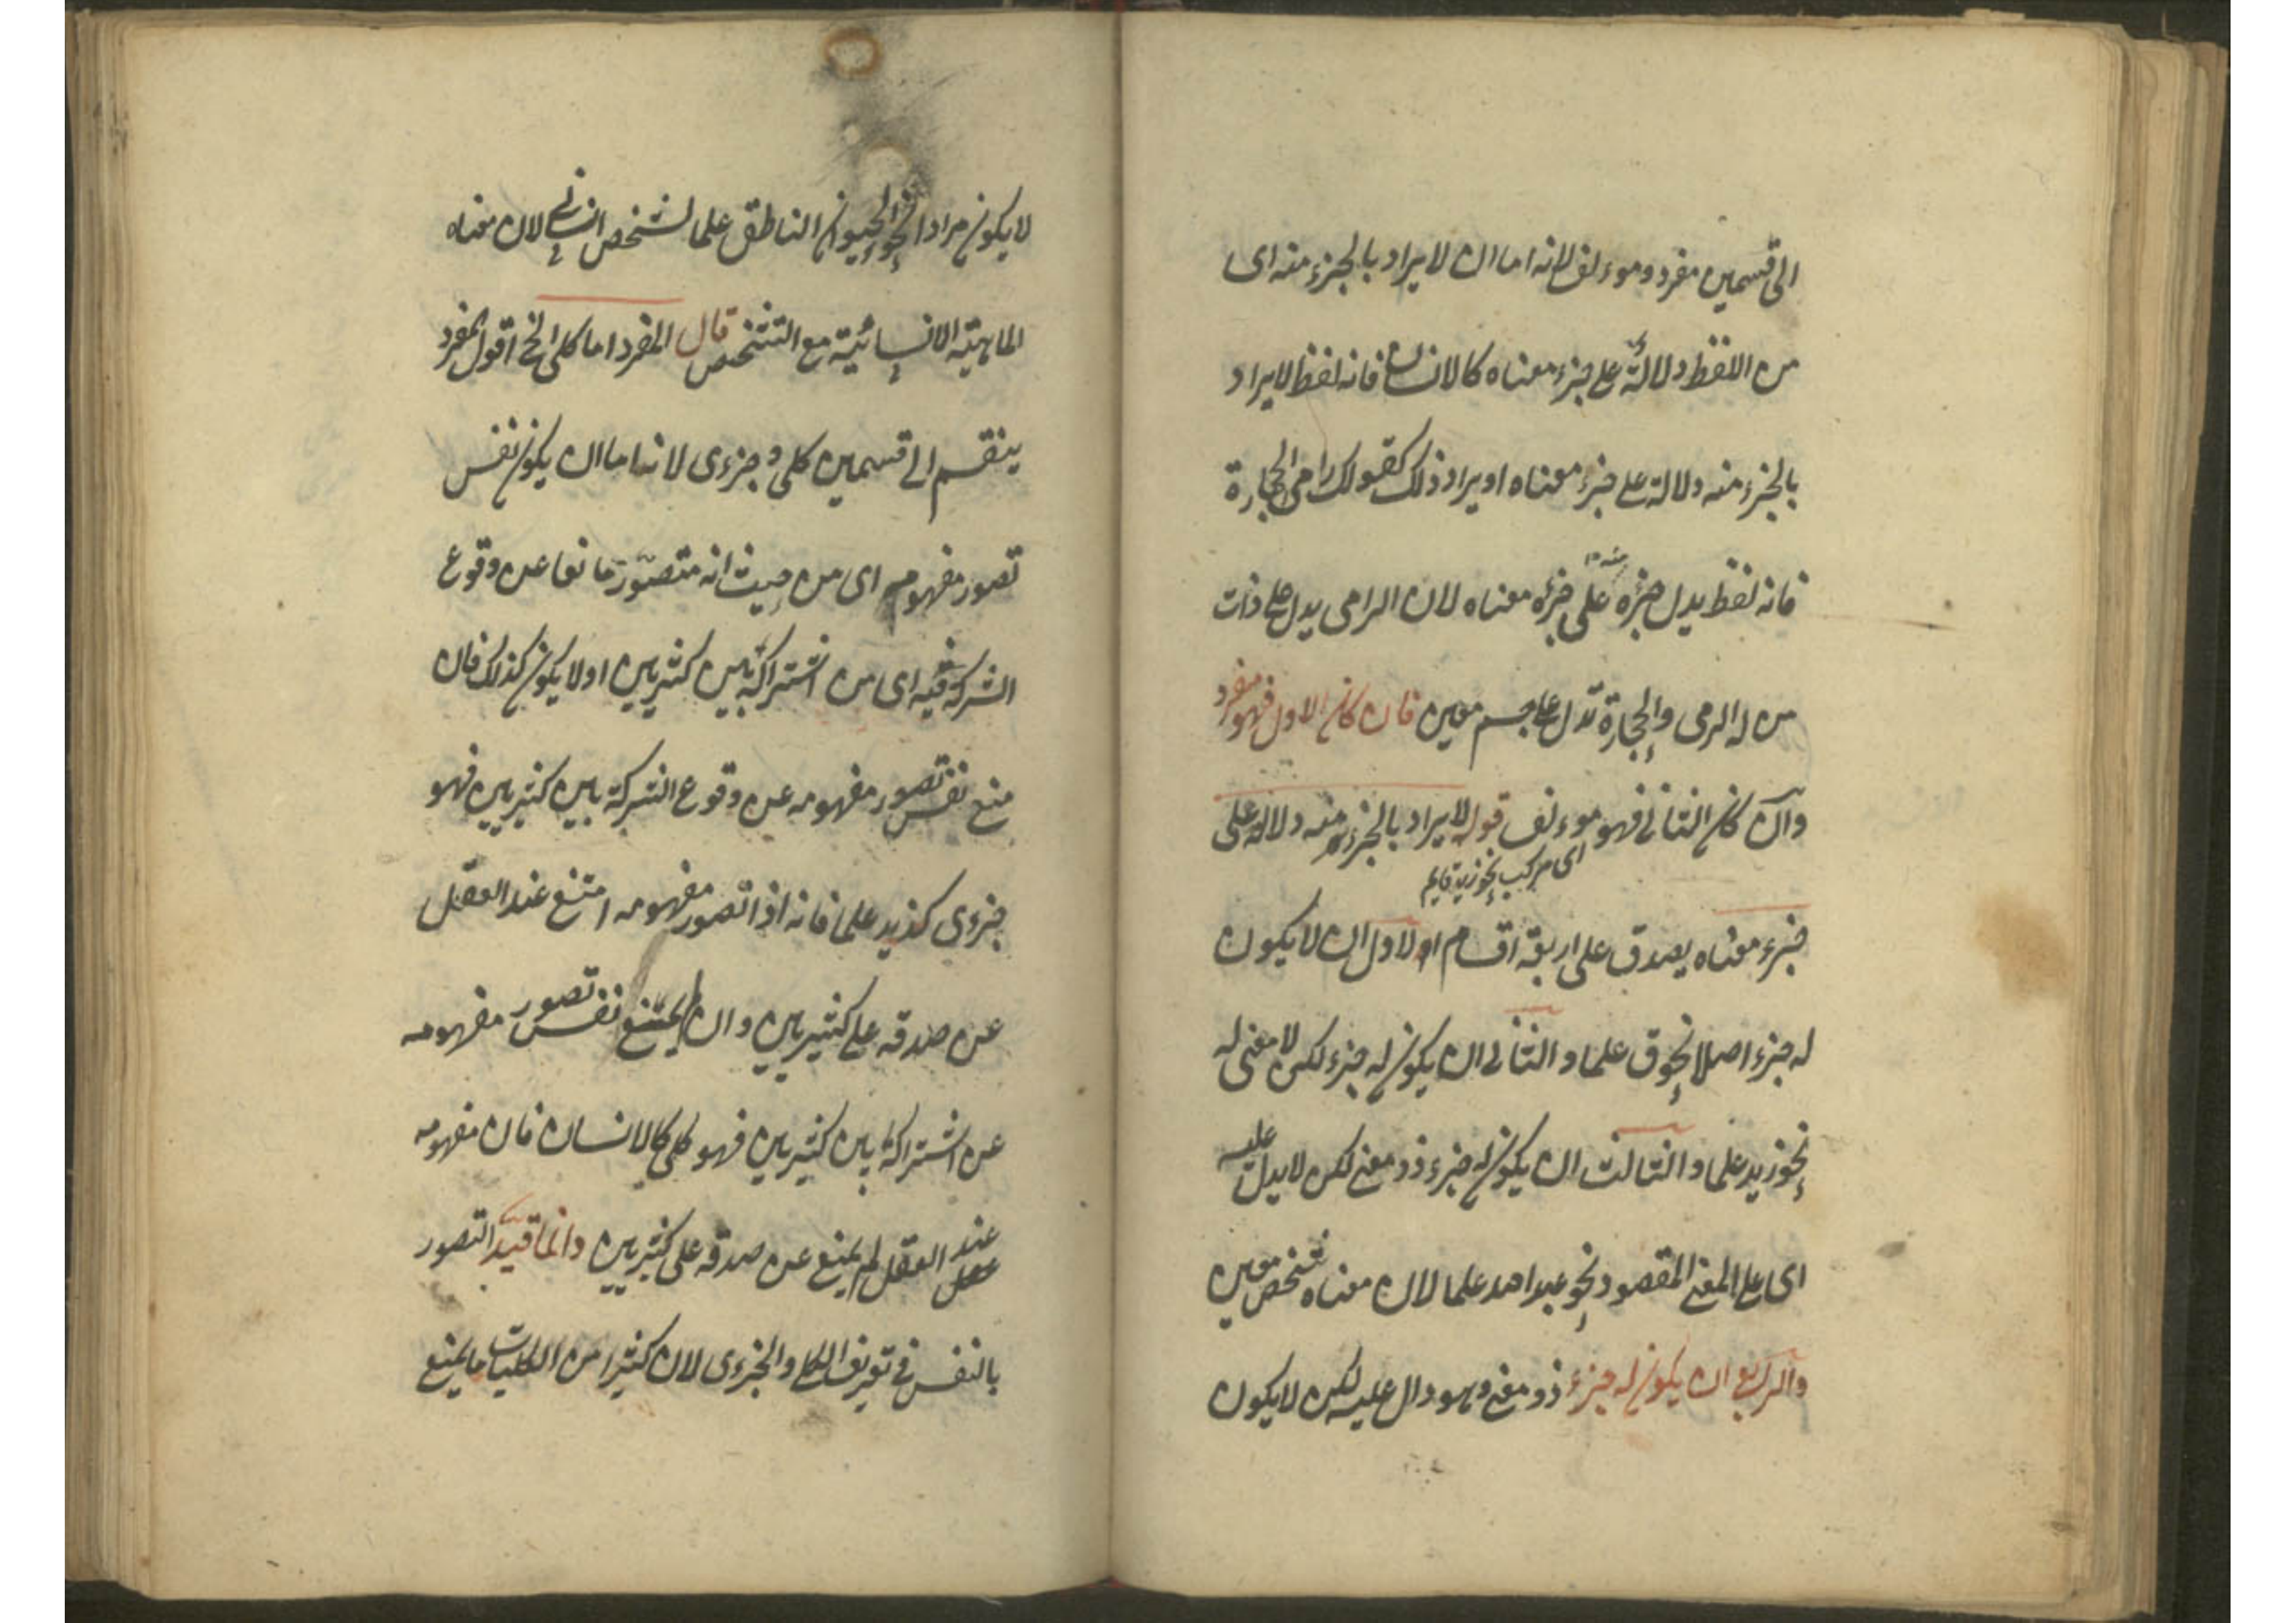 الى قسمين مفرد وموءلف لانه اما ان لا يراد بالجزء منه اى
من اللفظ دلالة على جزء معناه كالانسان فانه لفظ لا يراد
بالجزء منه دلالة على جزء معناه او يراد ذلك كقولك رامى الحجارة
فانه لفظ يدل جزؤه منه على جزؤه معناه لان الرامى يدل على ذات
من له الرمى والحجارة تدل على جسم معين فان كان الاول فهو مفرد
وان كان الثانى فهو موءلف قوله لا يراد بالجزء منه دلالة على
اى مركب نحو زيد قايم
جزء معناه يصدق على اربعة اقسام الاول ان لا يكون
له جزء اصلا نحو ق علما والثانى ان يكون له جزء لكن لا معنى له
نحو زيد علما والثالث ان يكون له جزء ذو معنى لكن لا يدل عليه
اى على المعنى المقصود نحو عبد الله علما لان معناه شخص معين
والرابع ان يكون له جزء ذو معنى وهو دال عليه لكن لا يكون
لا يكون مرادا نحو الحيوان الناطق علما لشخص انسانى لان معناه
الماهية الانسانية مع التشخص قال المفرد اما كلى الخ اقول المفرد
ينقسم الى قسمين كلى و جزءى لانه اما ان يكون نفس
تصور مفهومه اى من حيث انه متصور مانعا عن وقوع
الشركة فيه اى من اشتراكه بين كثيرين اولا يكون كذلك فان
منع نفس تصور مفهومه عن وقوع الشركة بين كثيرين فهو
جزءى كزيد علما فانه اذا تصور مفهومه امتنع عند العقل
عن صدقه على كثيرين وان لم يمتنع نفس تصور مفهومه
عن اشتراكه بين كثيرين فهو كلى كالانسان فان مفهومه
عند العقل لم يمنع عن صدقه على كثيرين وانما قيد التصور
بالنفس فى تعريف الكلى والجزءى لان كثيرا من الكليات ما يمنع